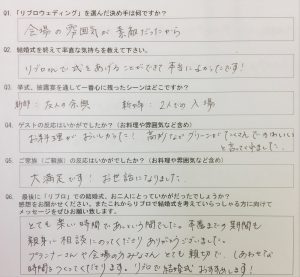 Q1.「リブロウェディング」を選んだ決め手は何ですか?
会場の雰囲気が素敵だったから
Q2. 結婚式を終えて率直な気持ちを教えて下さい。
リブロで式をあげることができて本当によかったです!
Q3. 挙式、披露宴を通して一番心に残ったシーンはどこですか?
新郎：友人の余興　新婦：2人での入場
Q4. ゲストの反応はいかがでしたか?（お料理や雰囲気など含め）
お料理がおいしかった! 高砂などグリーンがたくさんでかわいい
と言って頂きました。
Q5. ご家族（ご親族）の反応はいかがでしたか?（お料理や雰囲気など含め）
大満足です! お世話になりました。
Q6. 最後に「リブロ」での結婚式、お二人にとっていかがだったでしょうか?
感想をお聞かせください。またこれからリブロで結婚式を考えていらっしゃる方に向けて
メッセージをぜひお願い致します。
とても楽しい時間であっという間でした。準備までの期間も
親身に相談にのってくださりありがとうございました。
プランナーさんや会場のみなさん とても親切で、しあわせな
時間をつくってくださります。リブロで結婚式おすすめします!